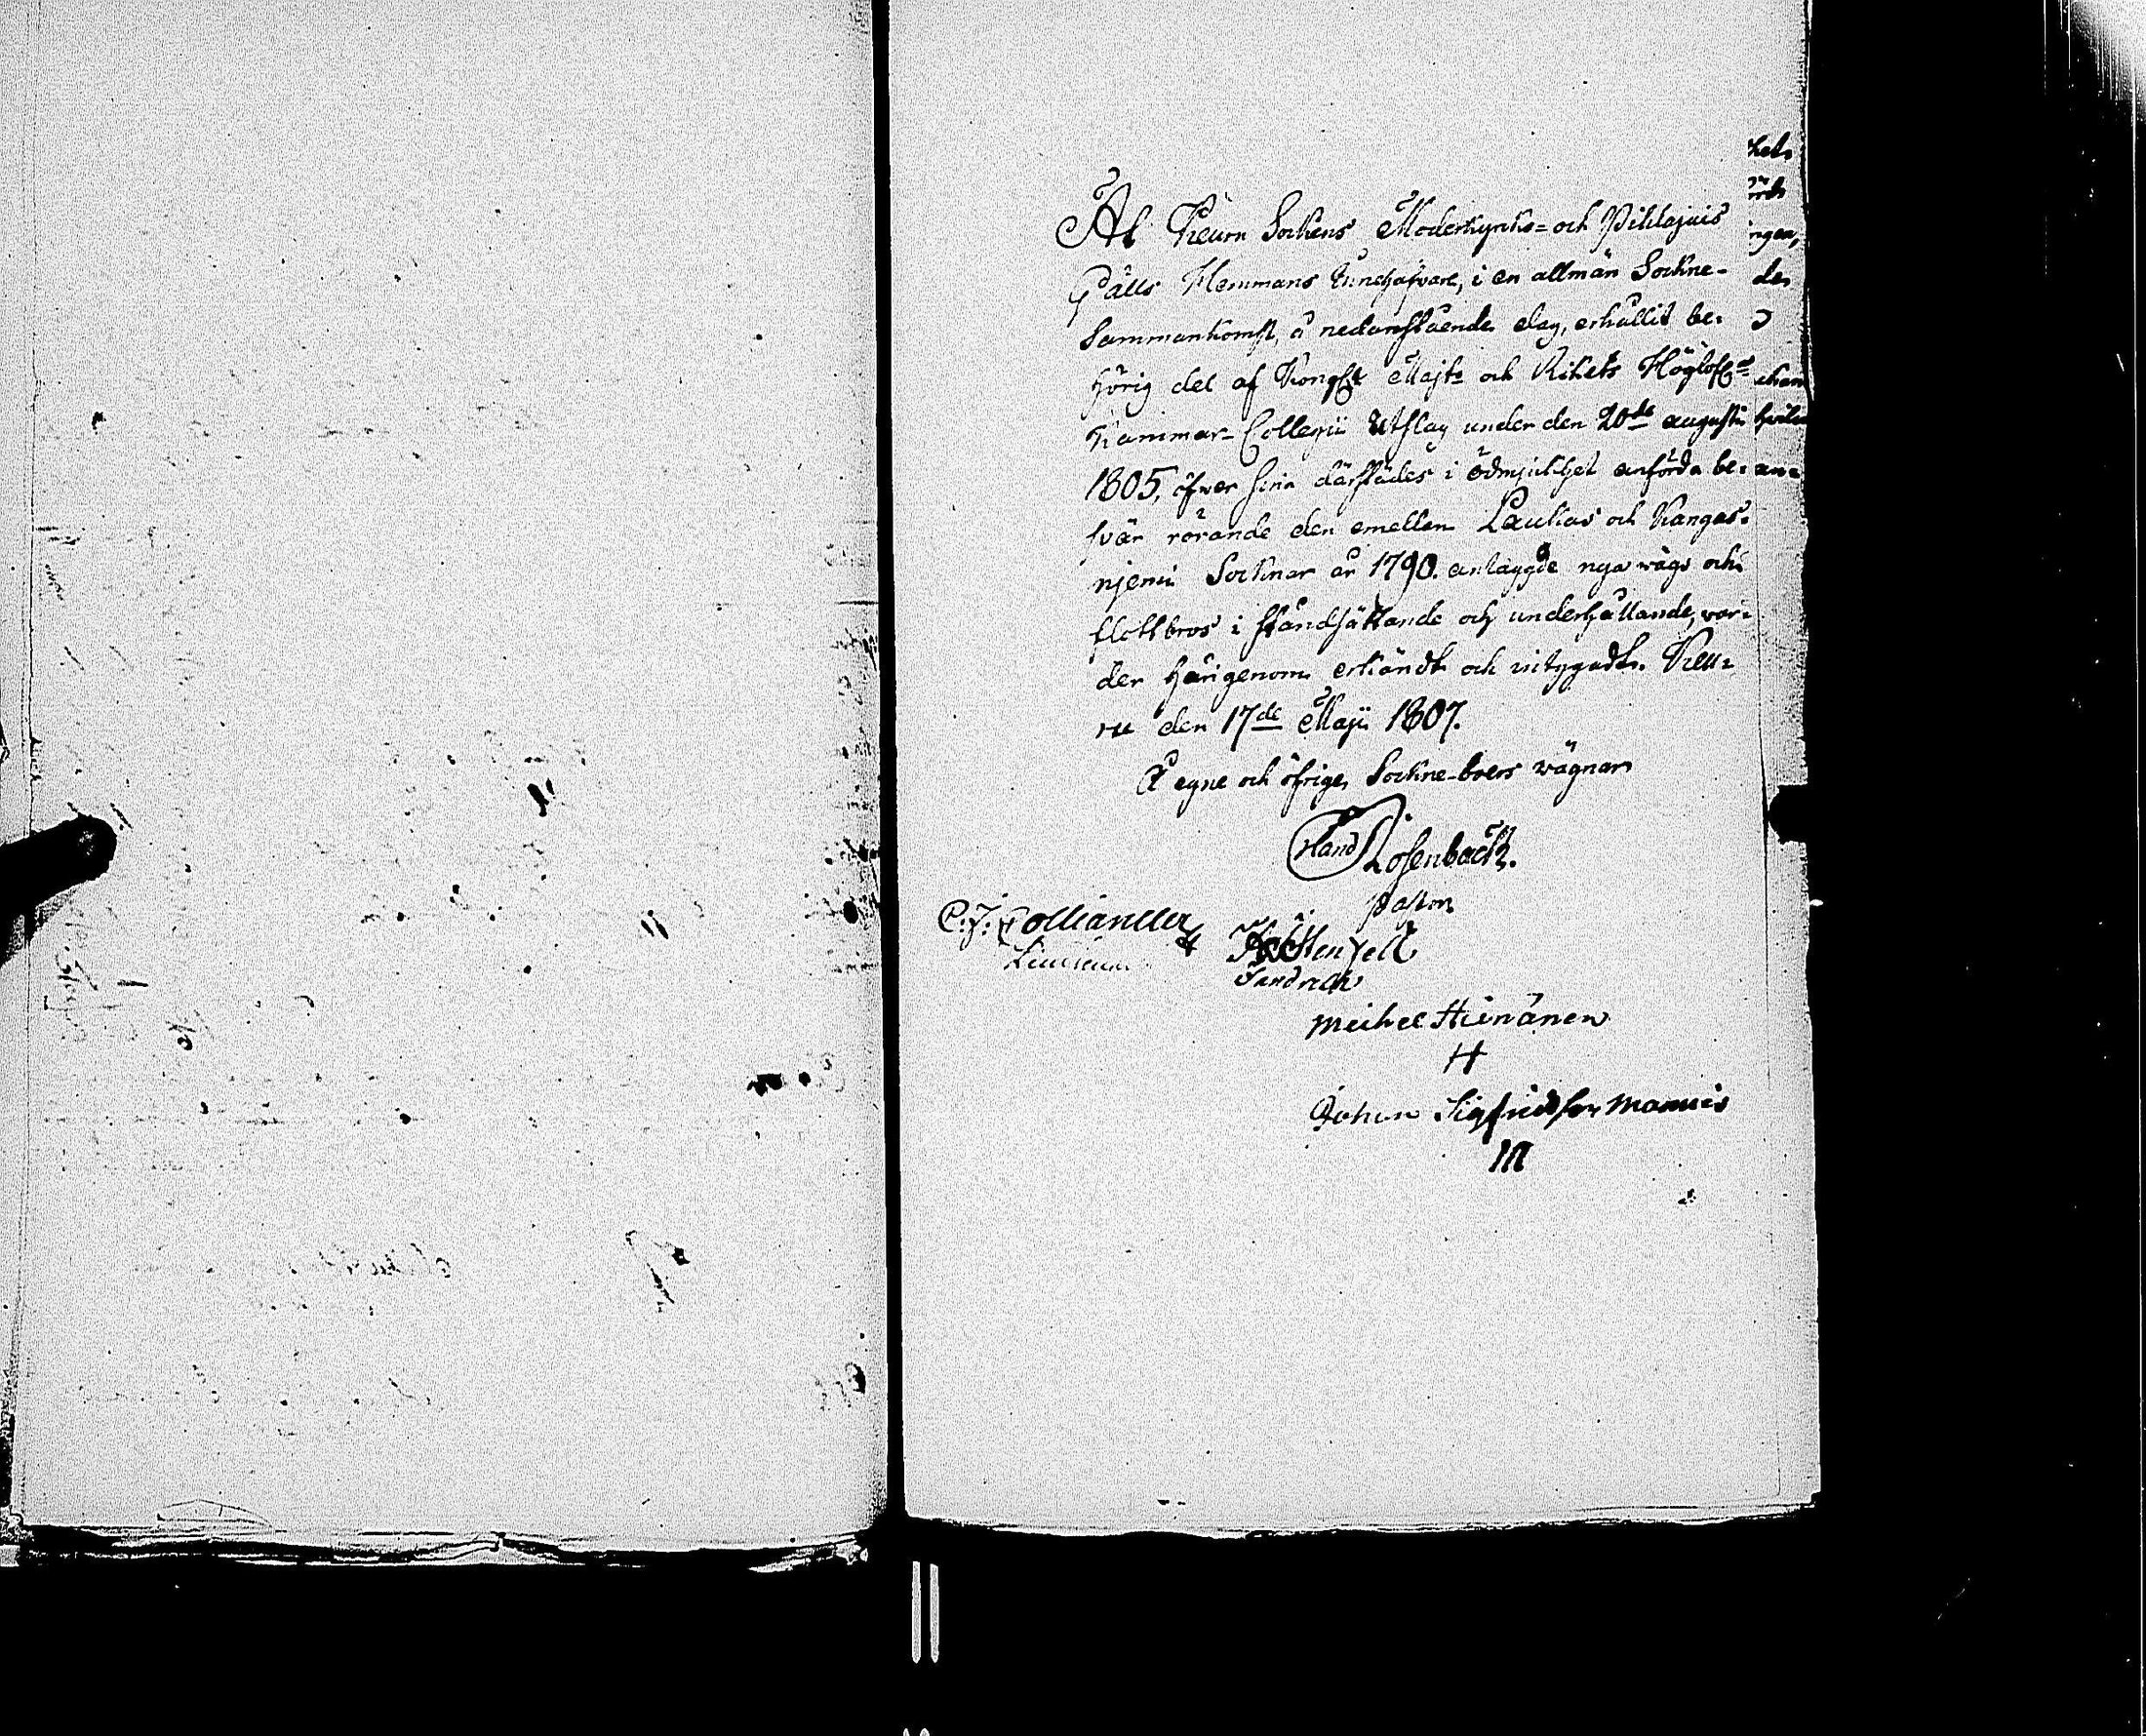 At Keuru Sockens Moderkyrko= och Pihlajavis
Gälls Hemmans Innehafvare, i en allmän Sockne-
Sammankomst, å nedanstående dag, erhållit be-
hörig del af Kongl Majts och Rikets Höglofl.
Kammar-Collegii Utslag under den 20de augusti
1805, öfver sina därstädes i ödmjukhet anförda be-
svär rörande den emellan Laukas och Kangas-
njemi Socknar år 1790. anlaggde nya wägs och
flottbros i ståndsättande och underhållande, var-
der härigenom erkändt och intygadt. Keu-
ru den 17de Maji 1807.
Å egne och öfrige Sockne-boers wägnar
Rosenback.
Pastor
C:J: Colliander
Meihel Hienänen
H
Johan Sigfridson Mamuis
M